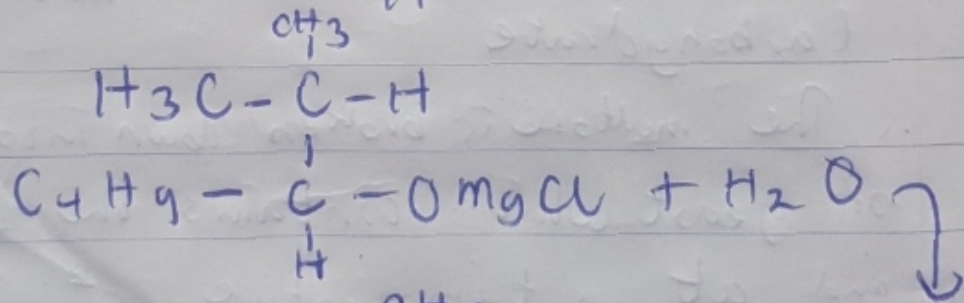 CH3
H3C - C - H
C4H9 - C - OMgCl + H2O
H